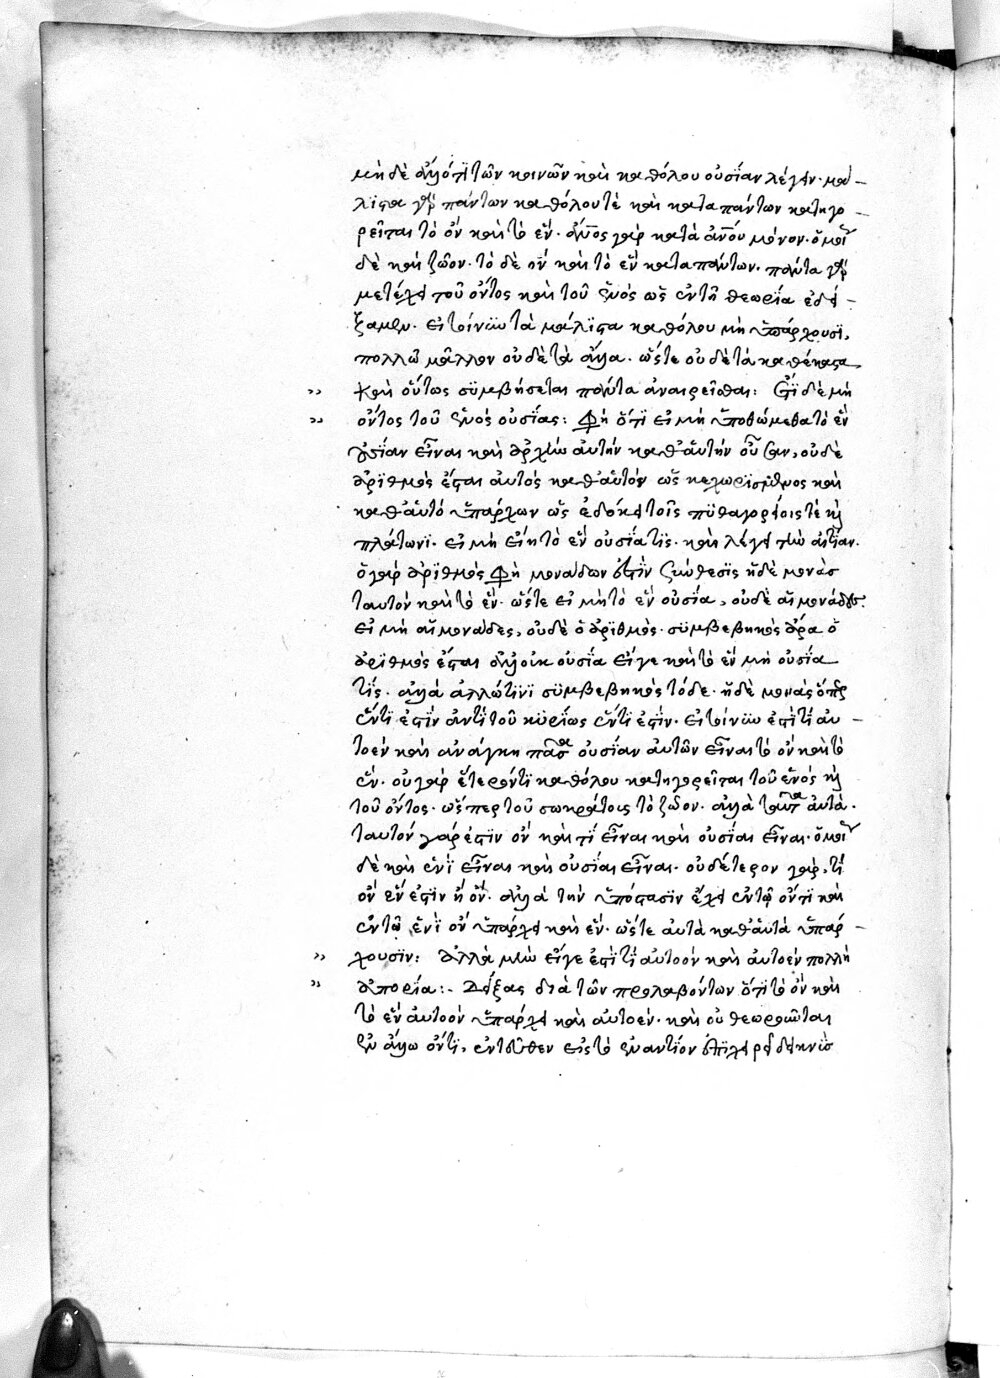 μὴ δὲ ἄλλό τι τῶν κοινῶν καὶ καθόλου οὐσΐαν λέγειν· μά–
λϊστα γὰρ πάντων καθόλου τὲ καὶ κατα πάντων κατηγο–
ρεῖται τὸ ὂν καὶ τὸ ἕν· ἄν̅ο̅ς γὰρ κατὰ ἀν̅ο̅υ μόνον· ὁμοί
δὲ καὶ ζῶον· τὸ δὲ ὂν καὶ τὸ ἓν κατα πάντων· πάντα γὰρ
μετέχει τοῦ ὄντος καὶ τοῦ ἑνός ὡς ἐν τῆ θεωρΐα ἐδεί–
ξαμεν. εἰ τοίνυν τὰ μάλϊστα καθόλου μὴ ὑπάρχουσϊ,
πολλῶ μᾶλλον οὐδὲ τὰ ἄλλα. ὥστε οὐδὲ τὰ καθέκαστα
» καὶ οὕτως συμβήσεται πάντα ἀναιρεῖσθαι: Ἔτϊ δὲ μὴ
» ὄντος τοῦ ἑνός οὐσίας: Φησὶ ὅτϊ εἰ μὴ ὑποθώμεθα τὸ ἓν
οὐσΐαν εἶναι καὶ ἀρχὴν αὐτὴν καθ' ἁυτὴν οὖσαν, οὐδὲ
ἀρϊθμὸς ἔσται αὐτὸς καθ' ἁυτὸν ὡς κεχωρϊσμένος καὶ
καθ' ἁυτὸ ὑπάρχων ὡς ἐδόκει τοῖς πϋθαγορείοις τὲ καὶ
πλάτωνϊ. εἰ μὴ εἴη τὸ ἓν οὐσία τϊς. καὶ λέγει τὴν αἰτΐαν.
ὁ γὰρ ἀρϊθμός φησὶ μονάδων ἐστὶν σύνθεσϊς ἡ δὲ μονὰς
ταυτὸν καὶ τὸ ἕν. ὥστε εἰ μὴ τὸ ἓν οὐσία, οὐδὲ αἱ μονάδες.
εἰ μὴ αἱ μονάδες, οὐδὲ ὁ ἀρϊθμὸς. συμβεβηκὸς ἄρα ὁ
ἀρϊθμὸς ἔσται ἀλλ' οὐκ οὐσία εἴγε καὶ τὸ ἓν μὴ οὐσία
τΐς. ἀλλὰ ἄλλω τϊνϊ συμβεβηκὸς τόδε. ἡ δὲ μονὰς ὅπερ
ἕν τϊ ἐστϊν ἀντὶ τοῦ κϋρΐως ἕν τϊ ἐστϊν. εἰ τοίνυν ἐστΐ τι αυ–
τοὲν καὶ ἀνάγκη πᾶσα οὐσίαν αὐτῶν εἶναι τὸ ὂν καὶ τὸ
ἕν. οὐ γὰρ ἕτερόν τϊ καθόλου κατηγορεῖται τοῦ ἑνὸς καὶ
τοῦ ὄντος. ὥσπερ τοῦ σωκράτους τὸ ζῶον. ἀλλὰ ταῦτα αὐτά.
ταυτόν γάρ ἐστϊν ὂν καὶ τὶ εἶναι καὶ οὐσίαν εἶναι. ὁμοί
δὲ καὶ ἑνΐ εἶναι καὶ οὐσίαν εἶναι. οὐδέτερον γάρ, τΐ
ὂν ἕν ἐστϊν ἢ ὄν. ἀλλὰ τὴν ὑπόστασϊν ἔχει ἐν τῷ ὄντϊ καὶ
ἐν τῷ ἑνϊ ὂν ὑπάρχει καὶ ἕν. ὥστε αὐτὰ καθ' ἁυτὰ ὑπάρ–
» χουσϊν: Ἀλλὰ μὴν εἴγε ἐστΐ τΐ αὐτοὸν καὶ αὐτοὲν πολλὴ
» ἀπορία:- Δείξας διὰ τῶν προλαβόντων ὅτϊ τὸ ὂν καὶ
τὸ ἓν αὐτοὸν ὑπάρχει καὶ αὐτοέν. καὶ οὐ θεωροῦνται
ἐν ἄλλω ὄντϊ, ἐντεῦθεν εἰς τὸ ἐναντίον ἐπϊχειρεῖ δεικνὺς